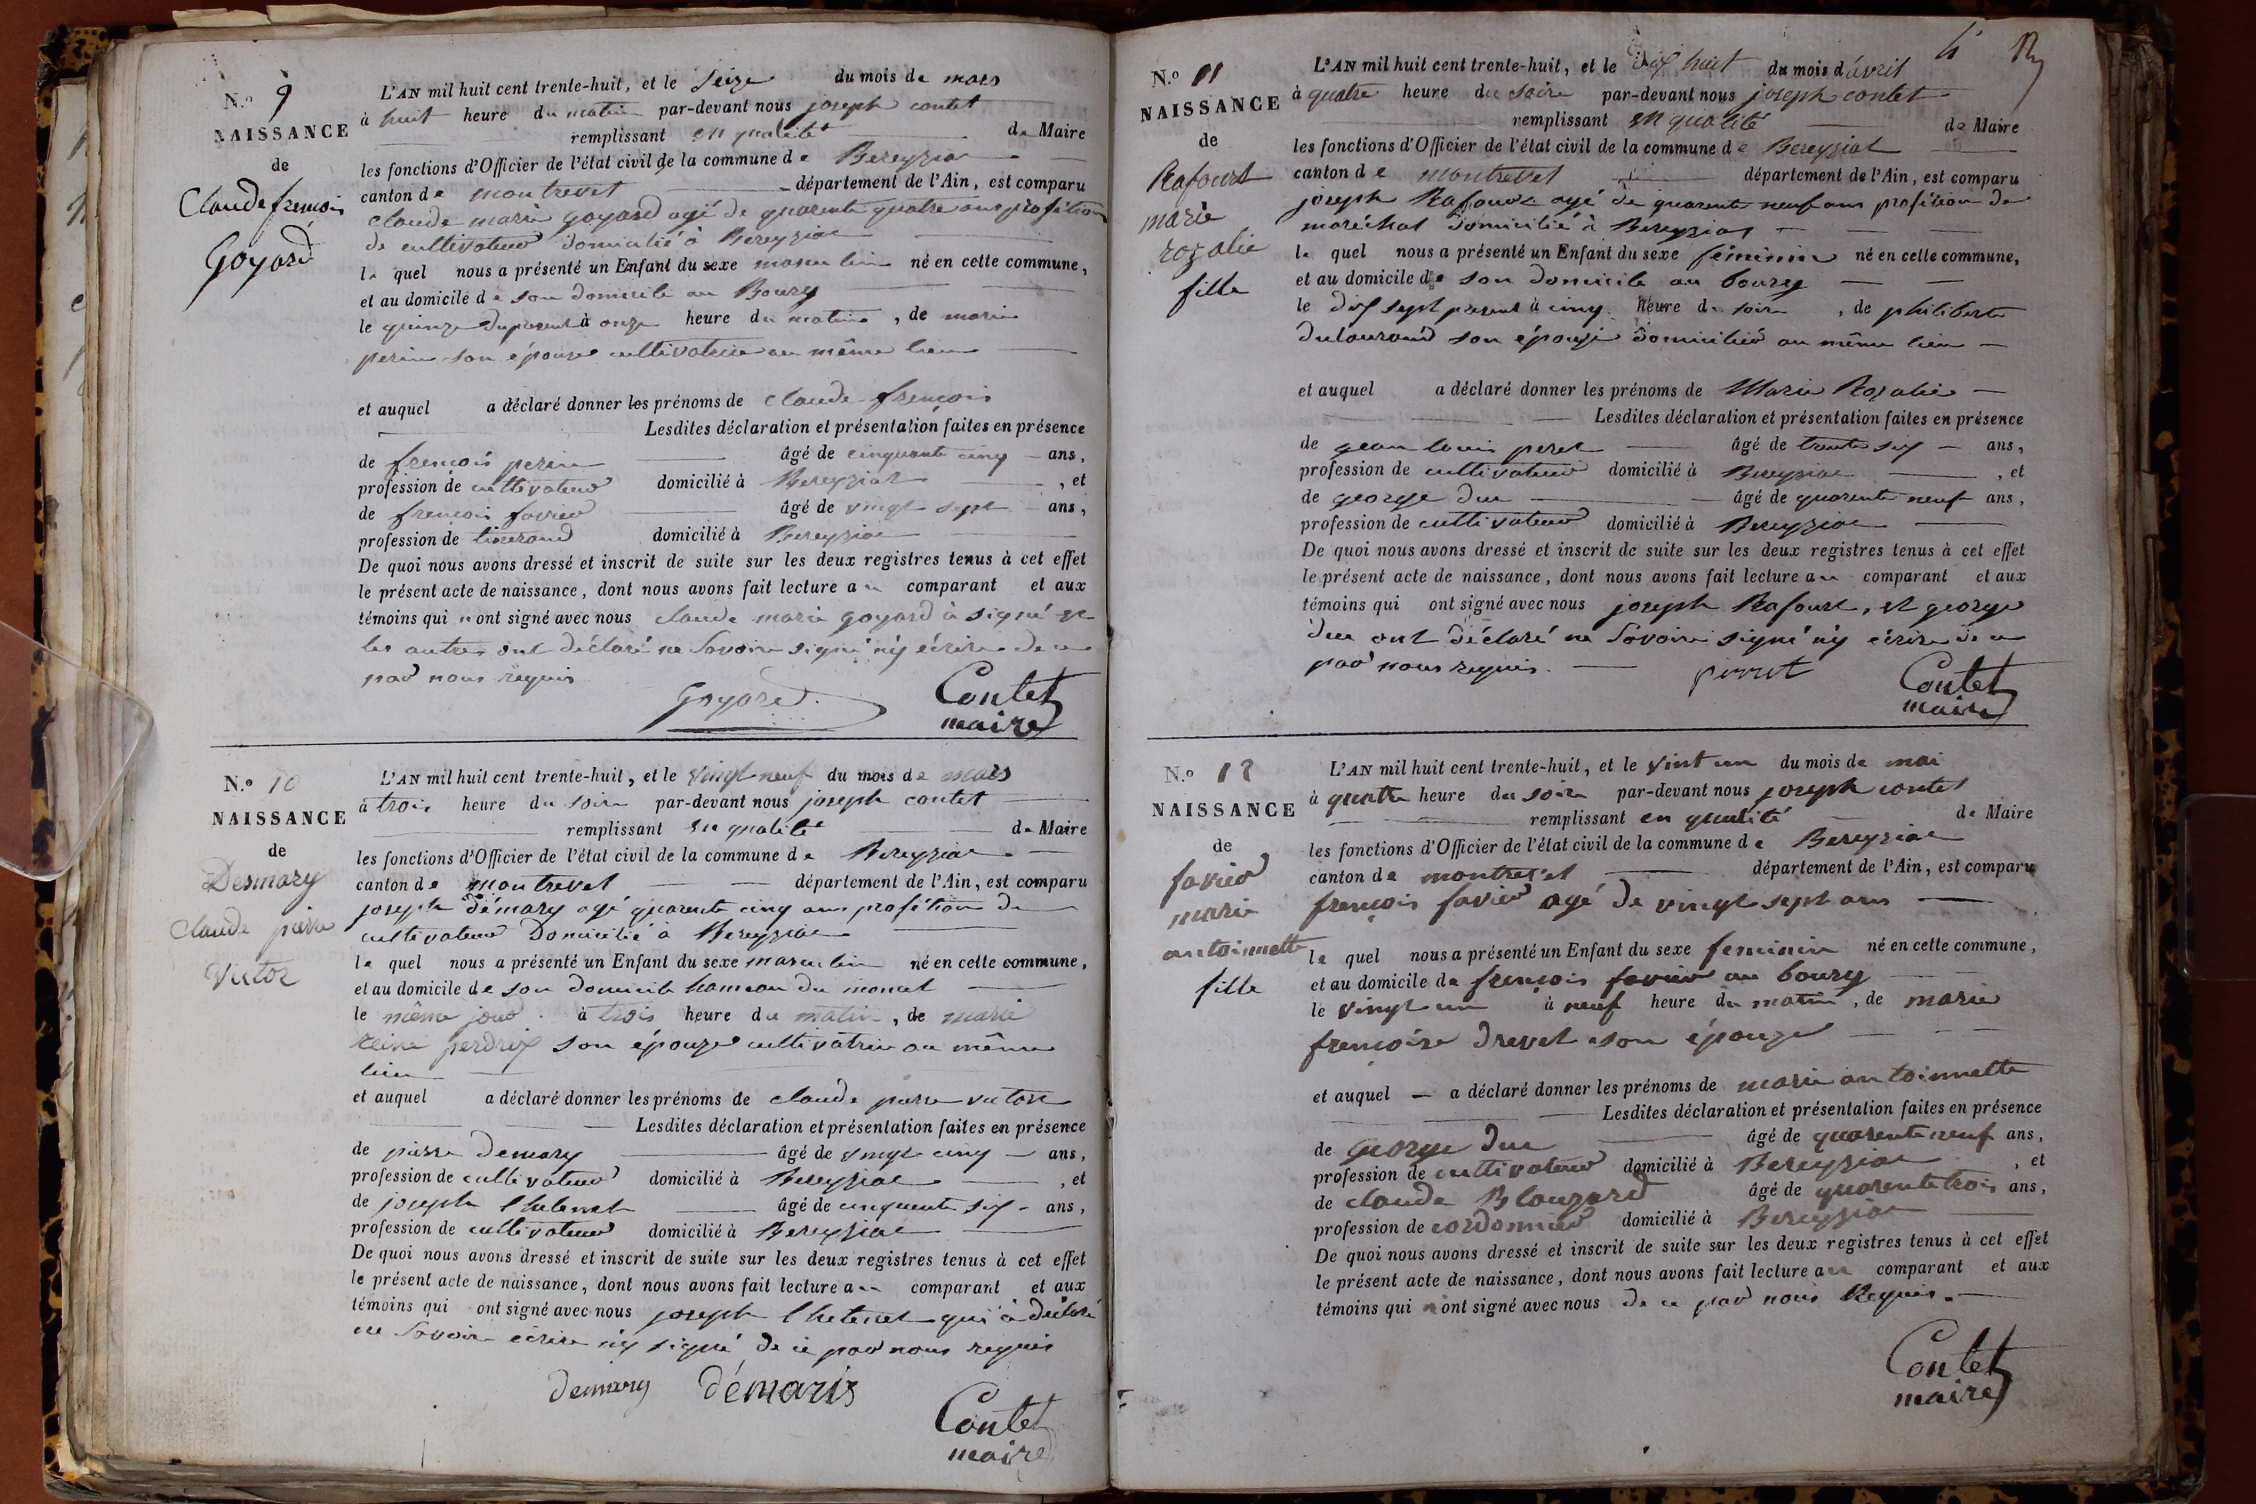 N.º 9
NAISSANCE
de
Claude frencois
Goyard
L'AN mil huit cent trente-huit, et le Seize du mois de mars
à huit heure du matin par-devant nous joseph contet
remplissant en qualité de Maire
les fonctions d'Officier de l'état civil de la commune de Bereyziat
canton de montrevet département de l'Ain, est comparu
claude marie goyard agé de quarente quatre ans profétion
de cultivateur domicilié à Bereyziat
le quel nous a présenté un Enfant du sexe masculin né en cette commune,
et au domicile de son domicile au Bourg
le quinze du présent à onze heure du matin, de marie
perin son épouze cultivatrice au même lieu
et auquel a déclaré donner les prénoms de claude frencois
Lesdites déclaration et présentation faites en présence
de frencois perin âgé de cinquante cinq ans,
profession de cultivateur domicilié à Bereyziat, et
de frencois favier âgé de vingt sept ans,
profession de tisserand domicilié à Bereyziat
De quoi nous avons dressé et inscrit de suite sur les deux registres tenus à cet effet
le présent acte de naissance, dont nous avons fait lecture au comparant et aux
témoins qui n ont signé avec nous claude marie goyard à signé et
les autres ont déclaré ne Savoir signé n'y écrire de ce
par nous requis
Goyard Contet
maire
N.º 10
NAISSANCE
de
Desmary
claude pierre
Victor
L'AN mil huit cent trente-huit, et le vingt neuf du mois de mars
à trois heure du soir par-devant nous joseph contet
remplissant en qualité de Maire
les fonctions d'Officier de l'état civil de la commune de Bereyziat
canton de montrevet département de l'Ain, est comparu
joseph démary agé quarente cinq ans profétion de
cultivateur Domicilié a Bereyziat
le quel nous a présenté un Enfant du sexe masculin né en cette commune,
et au domicile de son domicile hameau du moncet
le même jour à trois heure du matin, de marie
reine perdrix son épouze cultivatrice au même
lieu
et auquel a déclaré donner les prénoms de claude pierre victor
Lesdites déclaration et présentation faites en présence
de pierre demary âgé de vingt cinq ans,
profession de cultivateur domicilié à Bereyziat, et
de joseph Chatenet âgé de cinquente six ans,
profession de cultivateur domicilié à Bereyziat
De quoi nous avons dressé et inscrit de suite sur les deux registres tenus à cet effet
le présent acte de naissance, dont nous avons fait lecture au comparant et aux
témoins qui ont signé avec nous joseph Chatenet qui à déclaré
ne Savoir écrire n'y signé de ce par nous requis
demary démaris
Contet
maire
4
N.º 11
NAISSANCE
de
Rafourt
marie
rozalie
fille
L'AN mil huit cent trente-huit, et le dix huit du mois d'avril
à quatre heure du soir par-devant nous joseph contet
remplissant en qualité de Maire
les fonctions d'Officier de l'état civil de la commune de Bereyziat
canton de montrevet département de l'Ain, est comparu
joseph Rafourt agé de quarente neuf ans profétion de
maréchal domicilié à Bereyziat
le quel nous a présenté un Enfant du sexe féminin né en cette commune,
et au domicile de son domicile au bourg
le dix sept present à cinq heure du soir, de philiberte
dutouraud son épouze domicilié au même lieu
et auquel a déclaré donner les prénoms de Marie Rozalie
Lesdites déclaration et présentation faites en présence
de jean louis peret âgé de trente six ans,
profession de cultivateur domicilié à Bereyziat, et
de george duc âgé de quarente neuf ans,
profession de cultivateur domicilié à Bereyziat
De quoi nous avons dressé et inscrit de suite sur les deux registres tenus à cet effet
le présent acte de naissance, dont nous avons fait lecture au comparant et aux
témoins qui ont signé avec nous joseph Rafourt, et george
duc ont déclaré ne Savoir signé n'y écrire de ce
par nous requis. Contet
maire
N.º 12
NAISSANCE
de
favier
marie
antoinnette
fille
L'AN mil huit cent trente-huit, et le vint un du mois de mai
à quatre heure du soir par-devant nous joseph contet
remplissant en qualité de Maire
les fonctions d'Officier de l'état civil de la commune de Bereyziat
canton de montrevet département de l'Ain, est comparu
frençois favier agé de vingt sept ans
le quel nous a présenté un Enfant du sexe feminin né en cette commune,
et au domicile de frencois favier au bourg
le vingt un à neuf heure du matin, de marie
frençoise drevet son épouze
et auquel a déclaré donner les prénoms de marie antoinnette
Lesdites déclaration et présentation faites en présence
de george duc âgé de quarente neuf ans,
profession de cultivateur domicilié à Bereyziat, et
de claude Blouzard âgé de quarente trois ans,
profession de cordonnier domicilié à Bereyziat
De quoi nous avons dressé et inscrit de suite sur les deux registres tenus à cet effet
le présent acte de naissance, dont nous avons fait lecture au comparant et aux
témoins qui n ont signé avec nous de ce par nous Requis.
Contet
maire